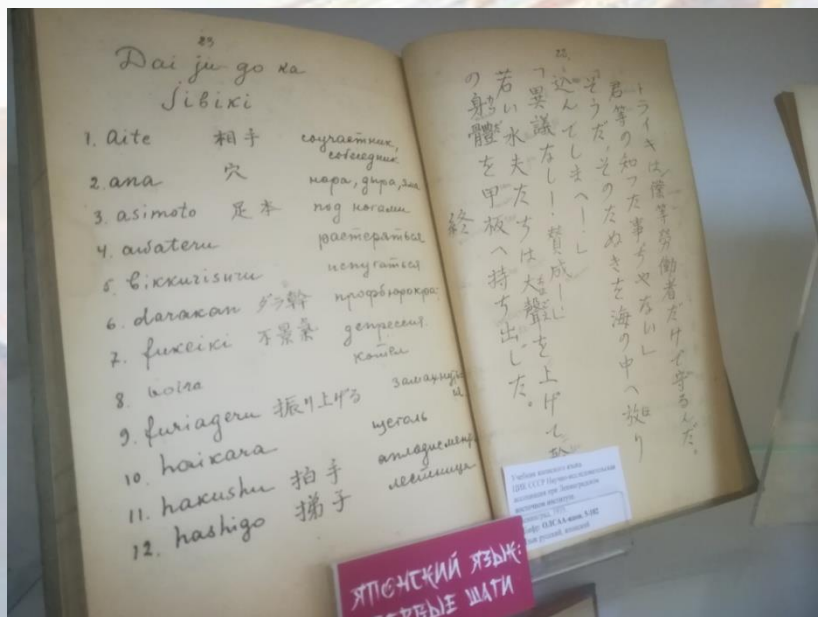 83
Dai ju go ka
Jibiki
1. aite 相手 соучастник,
собеседник
2. ana 穴 нора, дыра, яма
3. asimoto 足本 под ногами
4. awateru растеряться
5. bikkurisuru испугаться
6. darakan ダラ幹 профбюрокра
7. fukeiki 不景氣 депрессия.
8. котёл
9. furiageru 振り上げる
10. haikara щеголь
11. hakushu 拍手
12. hashigo 梯子 лестница
トライキは僕等勞働者だけで守るんだ。
君等の知つた事ぢやない」
「そうだ、そのたぬきを海の中へ放り
込んでしまへー!」
「異議なしー! 賛成ー!」
若い水夫たちは大聲を上げて
の身體を甲板へ持ち出した。
終
Учебник японского языка
ЦИК СССР Научно-исследовательская
ассоциация при Ленинградском
восточном институте
русский, японский
ЯПОНСКИЙ ЯЗЫК:
ПЕРВЫЕ ШАГИ